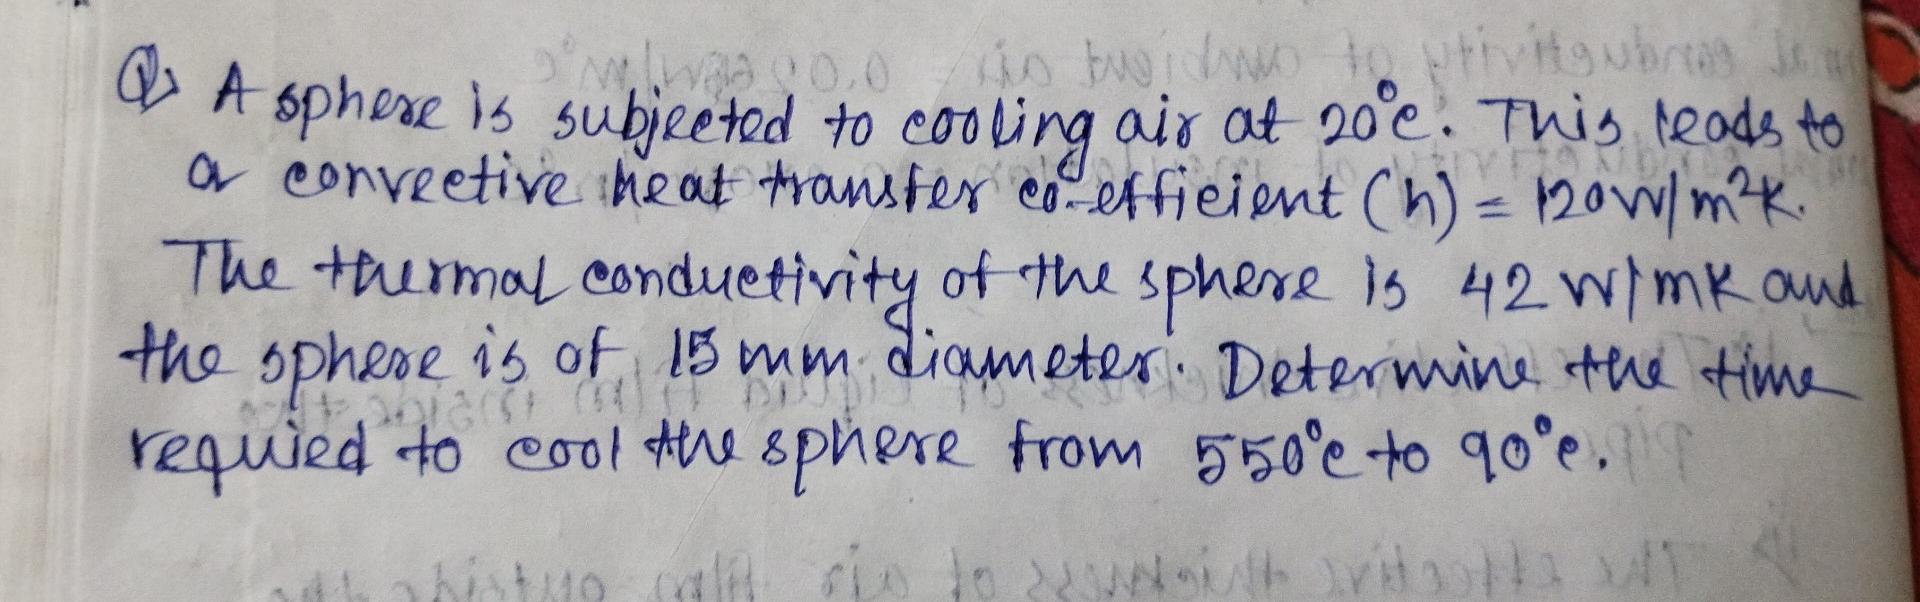 Q, A sphere is subjected to cooling air at 20°c. This leads to
a convective heat transfer co-efficient (h) = 120W/m²K.
The thermal conductivity of the sphere is 42 W/mK and
the sphere is of 15 mm diameter. Determine the time
requied to cool the sphere from 550°c to 90°c.